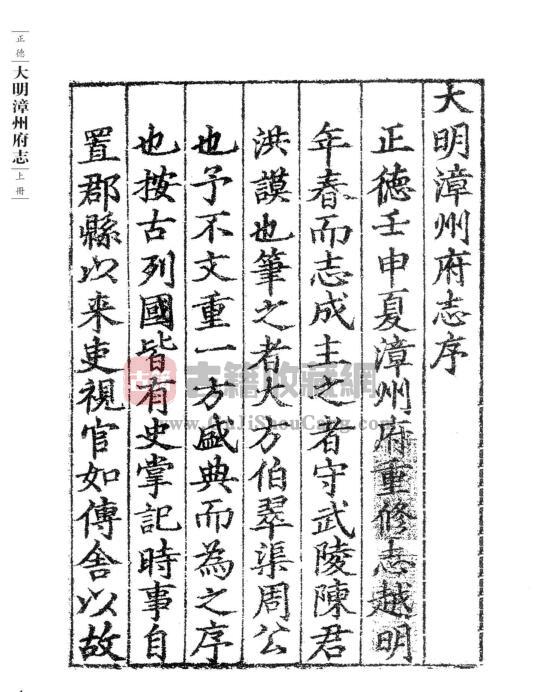 大明漳州府志序
正德壬申夏漳州府重修志越明
年春而志成主之者守武陵陳君
洪謨也筆之者大方伯翠渠周公
也予不文重一方盛典而為之序
也按古列國皆有史掌記時事自
置郡縣以来吏視官如傳舎以故
正德
大明漳州府志
上冊
古籍收藏網
www.GuJiShouCang.com